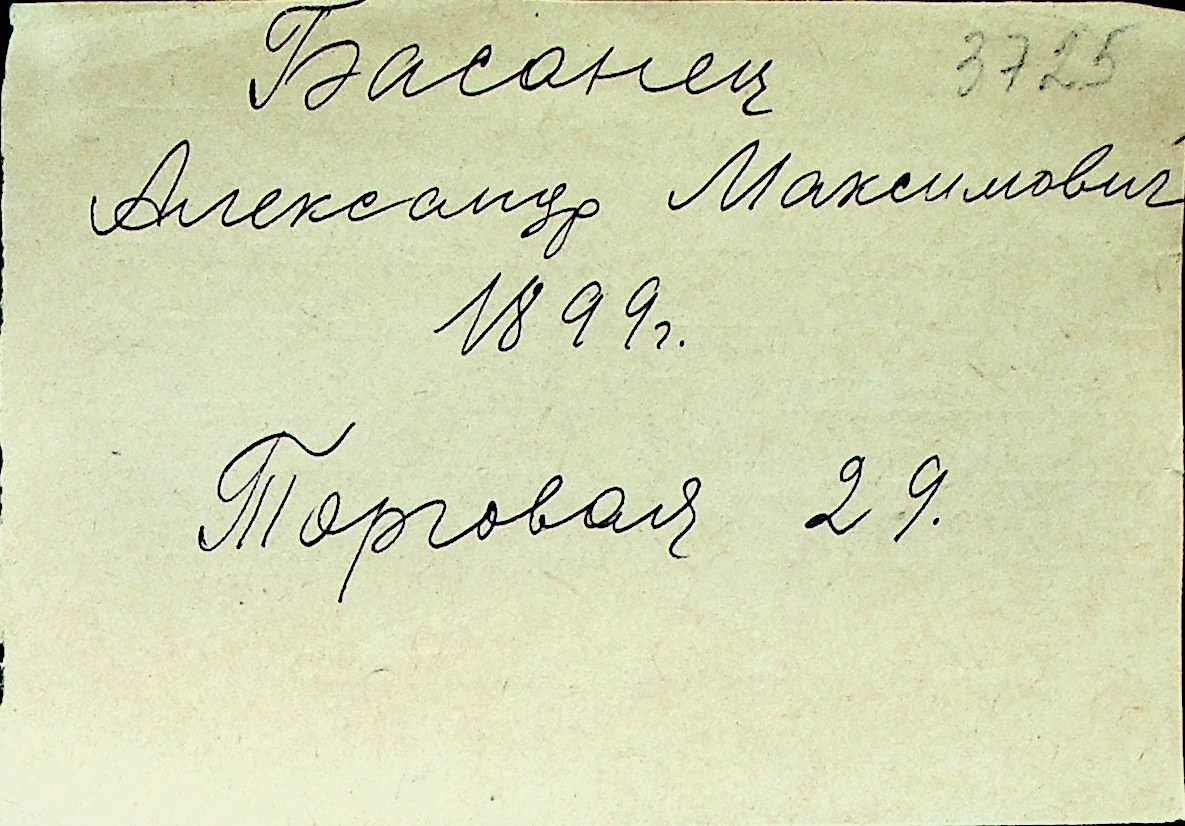 Басанец 3725
Александр Максимович
1899г.
Торговая 29.